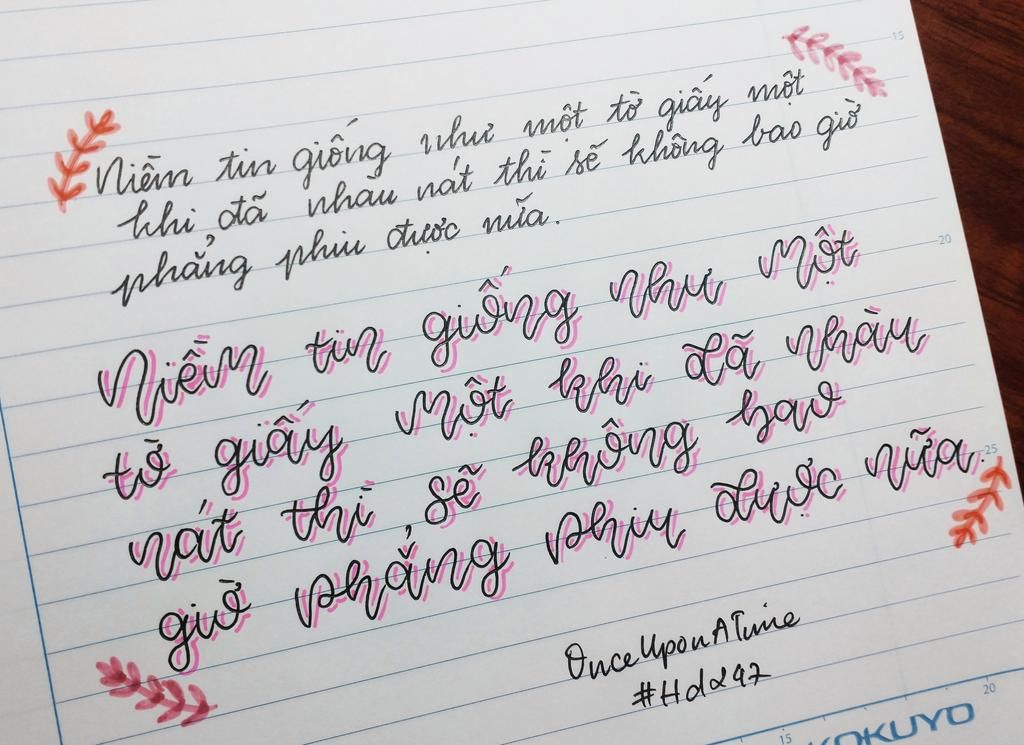 15
Niềm tin giống như một tờ giấy một
khi đã nhàu nát thì sẽ không bao giờ
phẳng phiu được nữa.
20
Niềm tin giống như một
tờ giấy một khi đã nhàu
nát thì sẽ không bao
25
giờ phẳng phiu được nữa.
OnceUponATime
#Hd297
15
20
KOKUYO